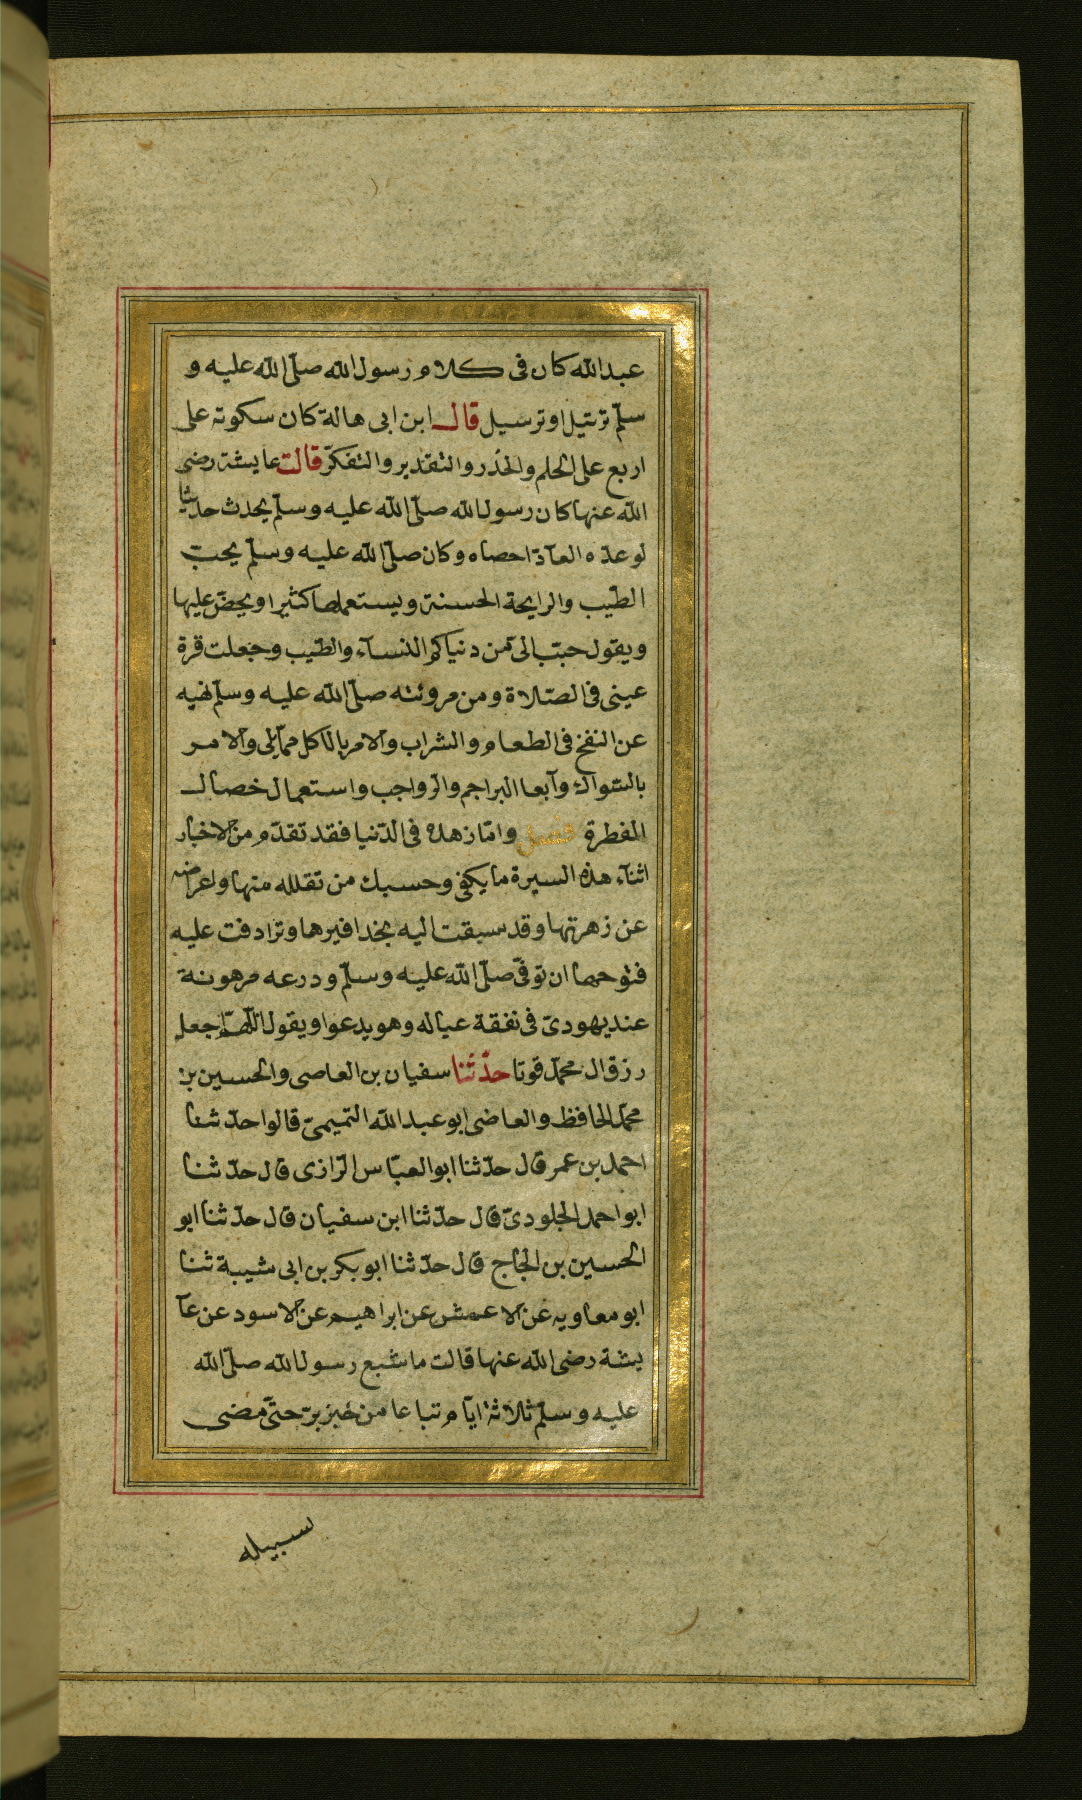 عبد الله كان فى كلام رسول الله صلّى الله عليه و
سلّم ترتيل او ترسيل قال ابن ابى هالة كان سكوته على
اربع على الحلم والحذر والتقدير والتفكّر قالت عايشة رضى
الله عنها كان رسول الله صلّى الله عليه وسلّم يحدث حديثا
لو عدّه العآدّ احصاه وكان صلّى الله عليه وسلّم يحبّ
الطّيب والرايحة الحسنة ويستعملهما كثيرا ويحضّ عليها
ويقول حبّب الىّ من دنياكم النسآء والطّيب وجعلت قرة
عينى فى الصّلاة ومن مروئته صلّى الله عليه وسلّم نهيه
عن النفخ فى الطعام والشراب والامر بالاكل ممّا يلى والامر
بالسّواك وآنعا البراجم والرواجب واستعمال خصال
الفطرة فصل وامّا زهده فى الدّنيا فقد تقدّم من الاخبار
اثنآء هذه السيرة ما يكفى وحسبك من تقلله منها واعراضه
عن زهرتها وقد سبقت اليه بحذافيرها وترادفت عليه
فتوحها ان توفّى صلّى الله عليه وسلّم ودرعه مرهونة
عند يهودىّ فى نفقة عياله وهو يدعوا ويقول اللهمّ اجعل
رزق ال محمّد قوتا حدّثنا سفيان بن العاصى والحسين بن
محمّد الحافظ والعاضى ابو عبد الله التميمىّ قالوا حدّثنا
احمد بن عمر قال حدّثنا ابو العبّاس الرّازى قال حدّثنا
ابو احمد الجلودىّ قال حدّثنا ابن سفيان قال حدّثنا ابو
الحسين بن الحجاج قال حدّثنا ابو بكر بن ابى شيبة ثنا
ابو معاويه عن الاعمش عن ابراهيم عن الاسود عن عآ
يشة رضى الله عنها قالت ما شبع رسول الله صلّى الله
عليه وسلّم ثلاثة ايّام تباعا من خبز برّ حتّى مضى
سبيله